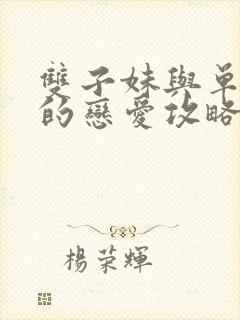 雙子妹與單
的戀愛攻略
楊荣輝